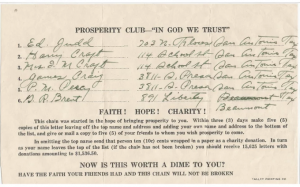 PROSPERITY CLUB—"IN GOD WE TRUST"
1. Ed Judd 703 N. San Antonio Tex
2. Harry Croft 114 School St San Antonio Tex
3. Mrs E M Croft 114 School St San Antonio Tex
4. James Craig 3811 San Antonio Tex
5. P. M. 3811 San Antonio Tex
6. B. R. Brent 891 Liberty Beaumont
FAITH! HOPE! CHARITY!
This chain was started in the hope of bringing prosperity to you. Within three (3) days make five (5)
copies of this letter leaving off the top name and address and adding your own name and address to the bottom of
the list, and give or mail a copy to five (5) of your friends to whom you wish prosperity to come.
In omitting the top name send that person ten (10c) cents wrapped in a paper as a charity donation. In turn
as your name leaves the top of the list (if the chain has not been broken) you should receive 15,625 letters with
donations amounting to $1,536.50.
NOW IS THIS WORTH A DIME TO YOU?
HAVE THE FAITH YOUR FRIEND HAD AND THIS CHAIN WILL NOT BE BROKEN